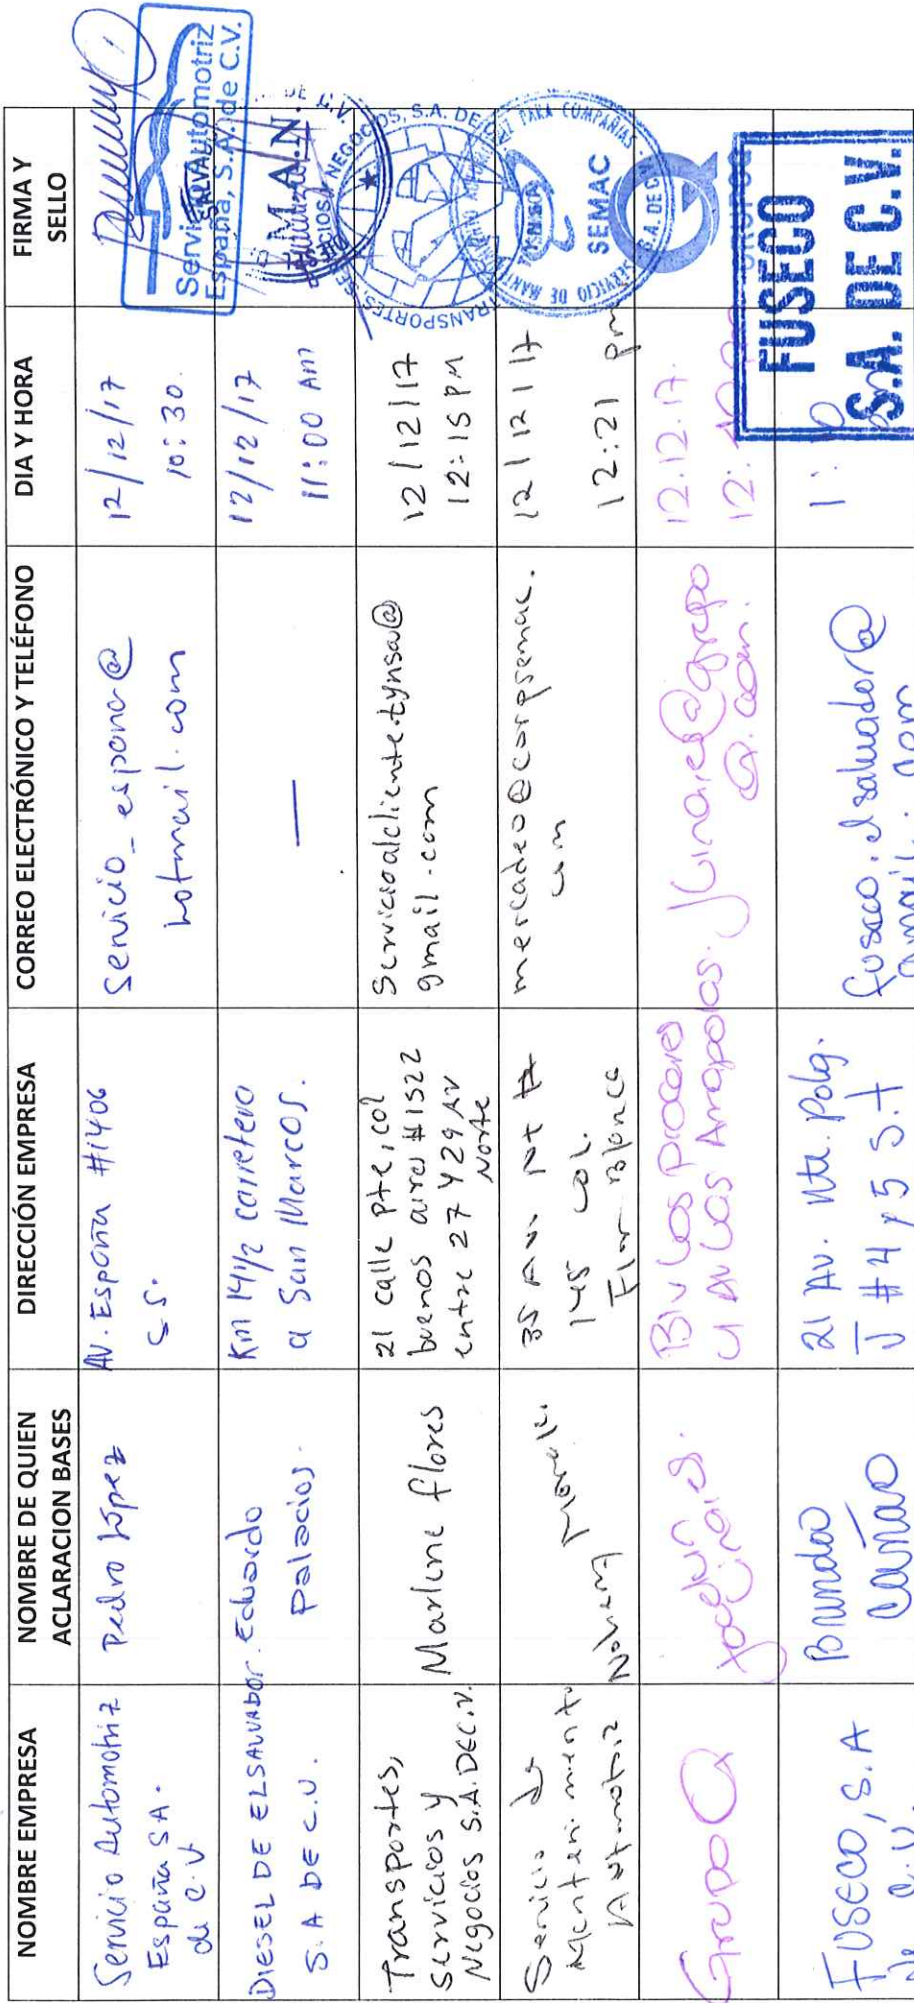 NOMBRE EMPRESA
NOMBRE DE QUIEN
ACLARACION BASES
DIRECCIÓN EMPRESA
CORREO ELECTRÓNICO Y TELÉFONO
DIA Y HORA
FIRMA Y
SELLO
Servicio Automotriz
España SA.
de C.V
Pedro López
AV. España #1406
S.S.
Servicio_espana@
hotmail.com
12/12/17
10:30.
Servicio Automotriz
España, S.A. de C.V.
DIESEL DE EL SALVADOR.
S.A DE C.V.
Eduardo
Palacios.
Km 14½ carretera
a San Marcos.
—
12/12/17
11:00 Am
M.A.N.
Transportes,
Servicios y
Negocios S.A.DE C.V.
Marlene flores
21 calle pte, col
buenos aires #1522
entre 27 Y 29 AV
Norte
Servicioalcliente.tynsa@
gmail.com
12/12/17
12:15 PM
NEGOCIOS, S.A. DE
TRANSPORTES,
Servicio de
Mantenimiento
Automotriz
35 Av. Nt #
145 Col.
Flor Blanca
mercadeo@corpsemac.
com
12/12/17
12:21 pm
PARA COMPAÑIAS
SEMAC
SERVICIO DE
S.A. DE C.V.
Grupo Q
Joselin
Linares.
Blv Los Proceres
y Av Las Amapolas.
jlinares@grupo
q.com.
12.12.17.
12:
FUSECO, S.A
de C.V.
Brenda
21 Av. Nte. Polg.
J #4 y 5 S.
fuseco.elsalvador@
gmail.com
1:
FUSECO
S.A. DE C.V.